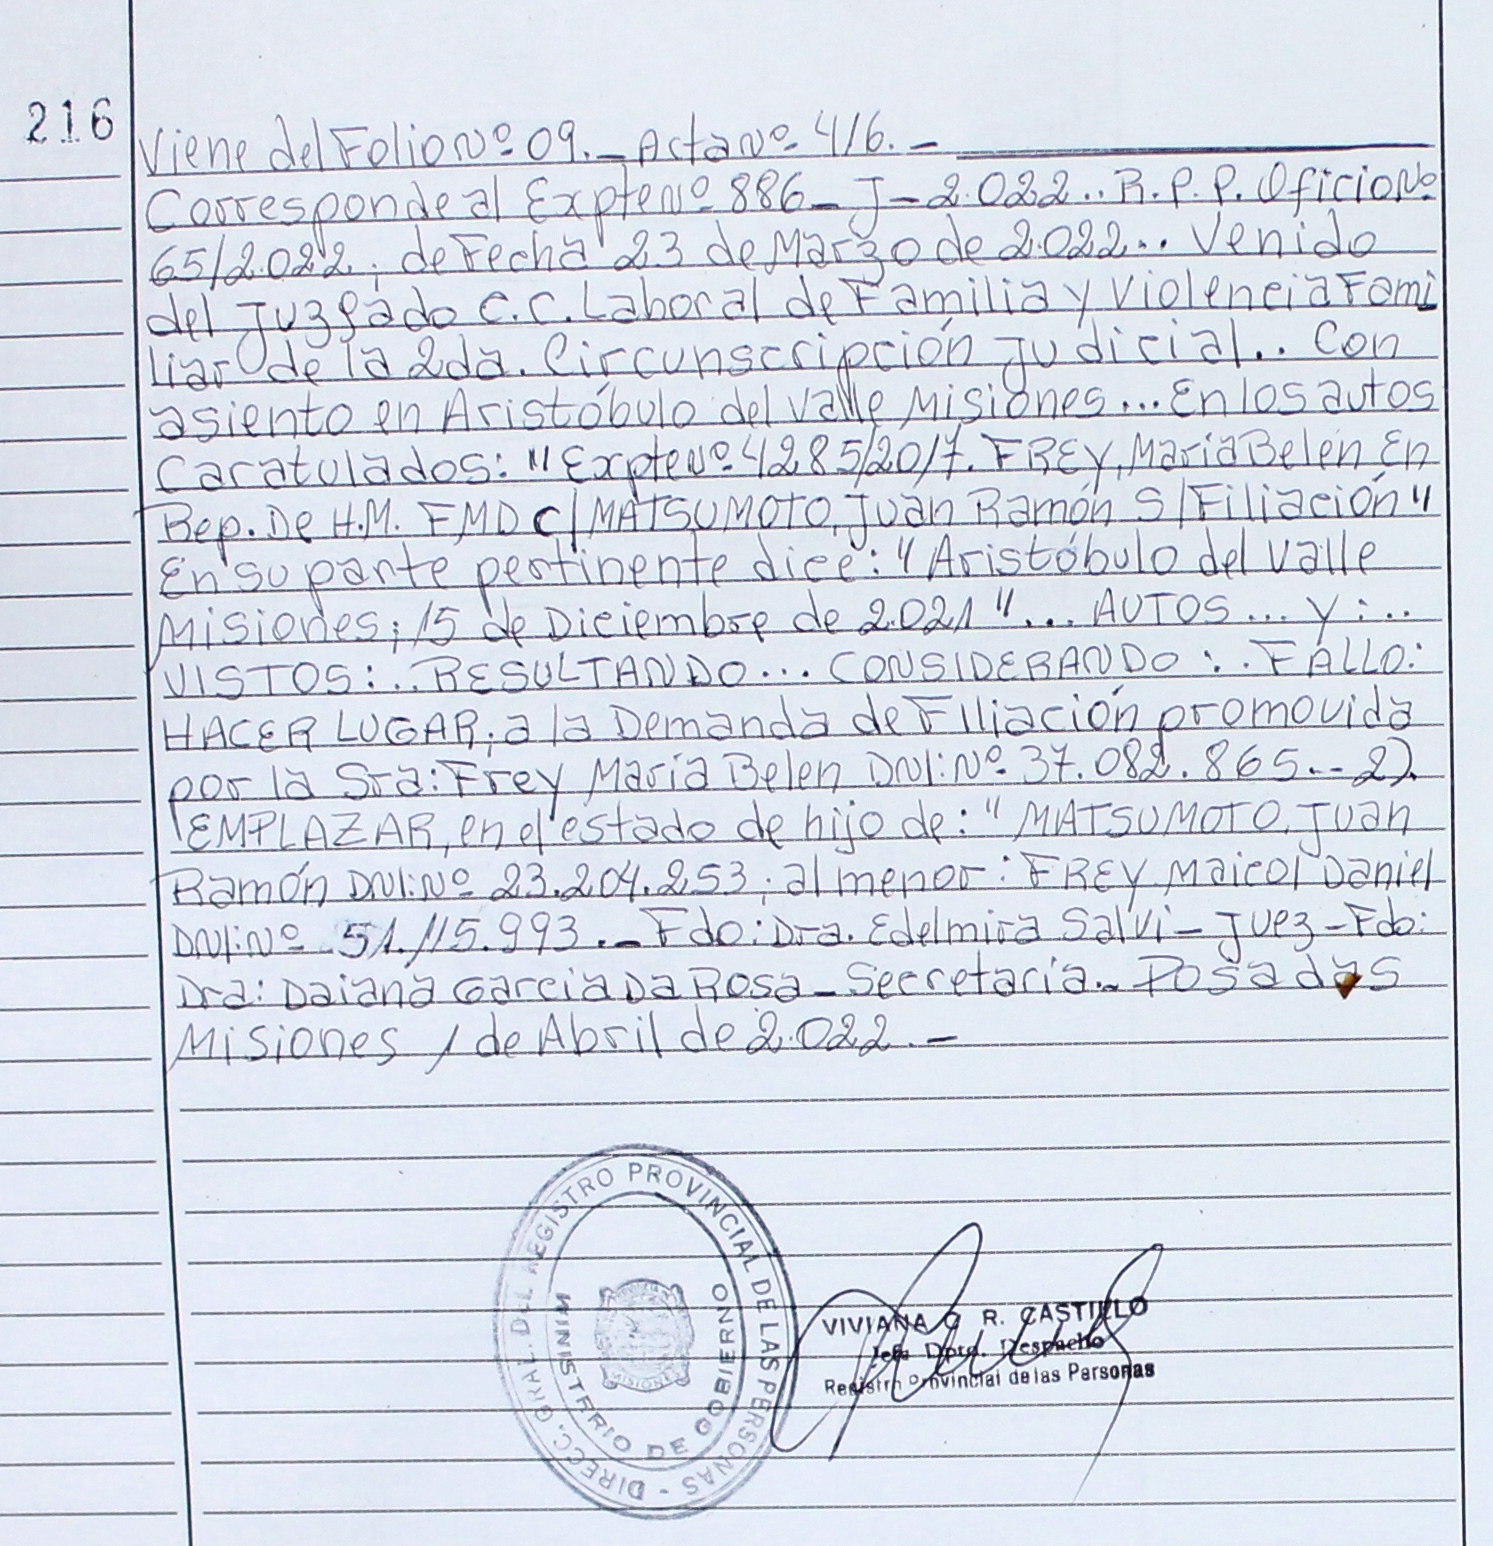 216
Viene del Folio Nº 09._ Acta Nº 416._
Corresponde al Expte Nº 886_J_2.022.. R.P.P. Oficio Nº
65/2.022; de Fecha 23 de Marzo de 2.022.. Venido
del Juzgado C.C. Laboral de Familia y Violencia Fami
liar de la 2da. Circunscripción Judicial.. Con
asiento en Aristóbulo del Valle Misiones... En los autos
Caratulados: "Expte Nº 4285/2017. FREY, Maria Belén En
Rep. De H.M. FMD C/MATSUMOTO, Juan Ramón S/Filiación"
En su parte pertinente dice: "Aristóbulo del Valle
Misiones; 15 de Diciembre de 2.021"... AUTOS... y:..
VISTOS:.. RESULTANDO... CONSIDERANDO:.. FALLO:
HACER LUGAR; a la Demanda de Filiación promovida
por la Sra: Frey Maria Belen DNI: Nº 37.082.865.. 2).
EMPLAZAR, en el estado de hijo de: "MATSUMOTO, Juan
Ramón DNI: Nº 23.204.253; al menor: FREY Maicol Daniel
DNI: Nº 51.115.993._ Fdo: Dra. Edelmira Salvi_ Juez_ Fdo:
Dra: Daiana Garcia Da Rosa_ Secretaria.. Posadas
Misiones 1 de Abril de 2.022._
DIRECC. GRAL. DEL REGISTRO PROVINCIAL DE LAS PERSONAS -
MINISTERIO DE GOBIERNO
MISIONES
VIVIANA G. R. CASTILLO
Jefa Dpto. Despacho
Registro Provincial de las Personas